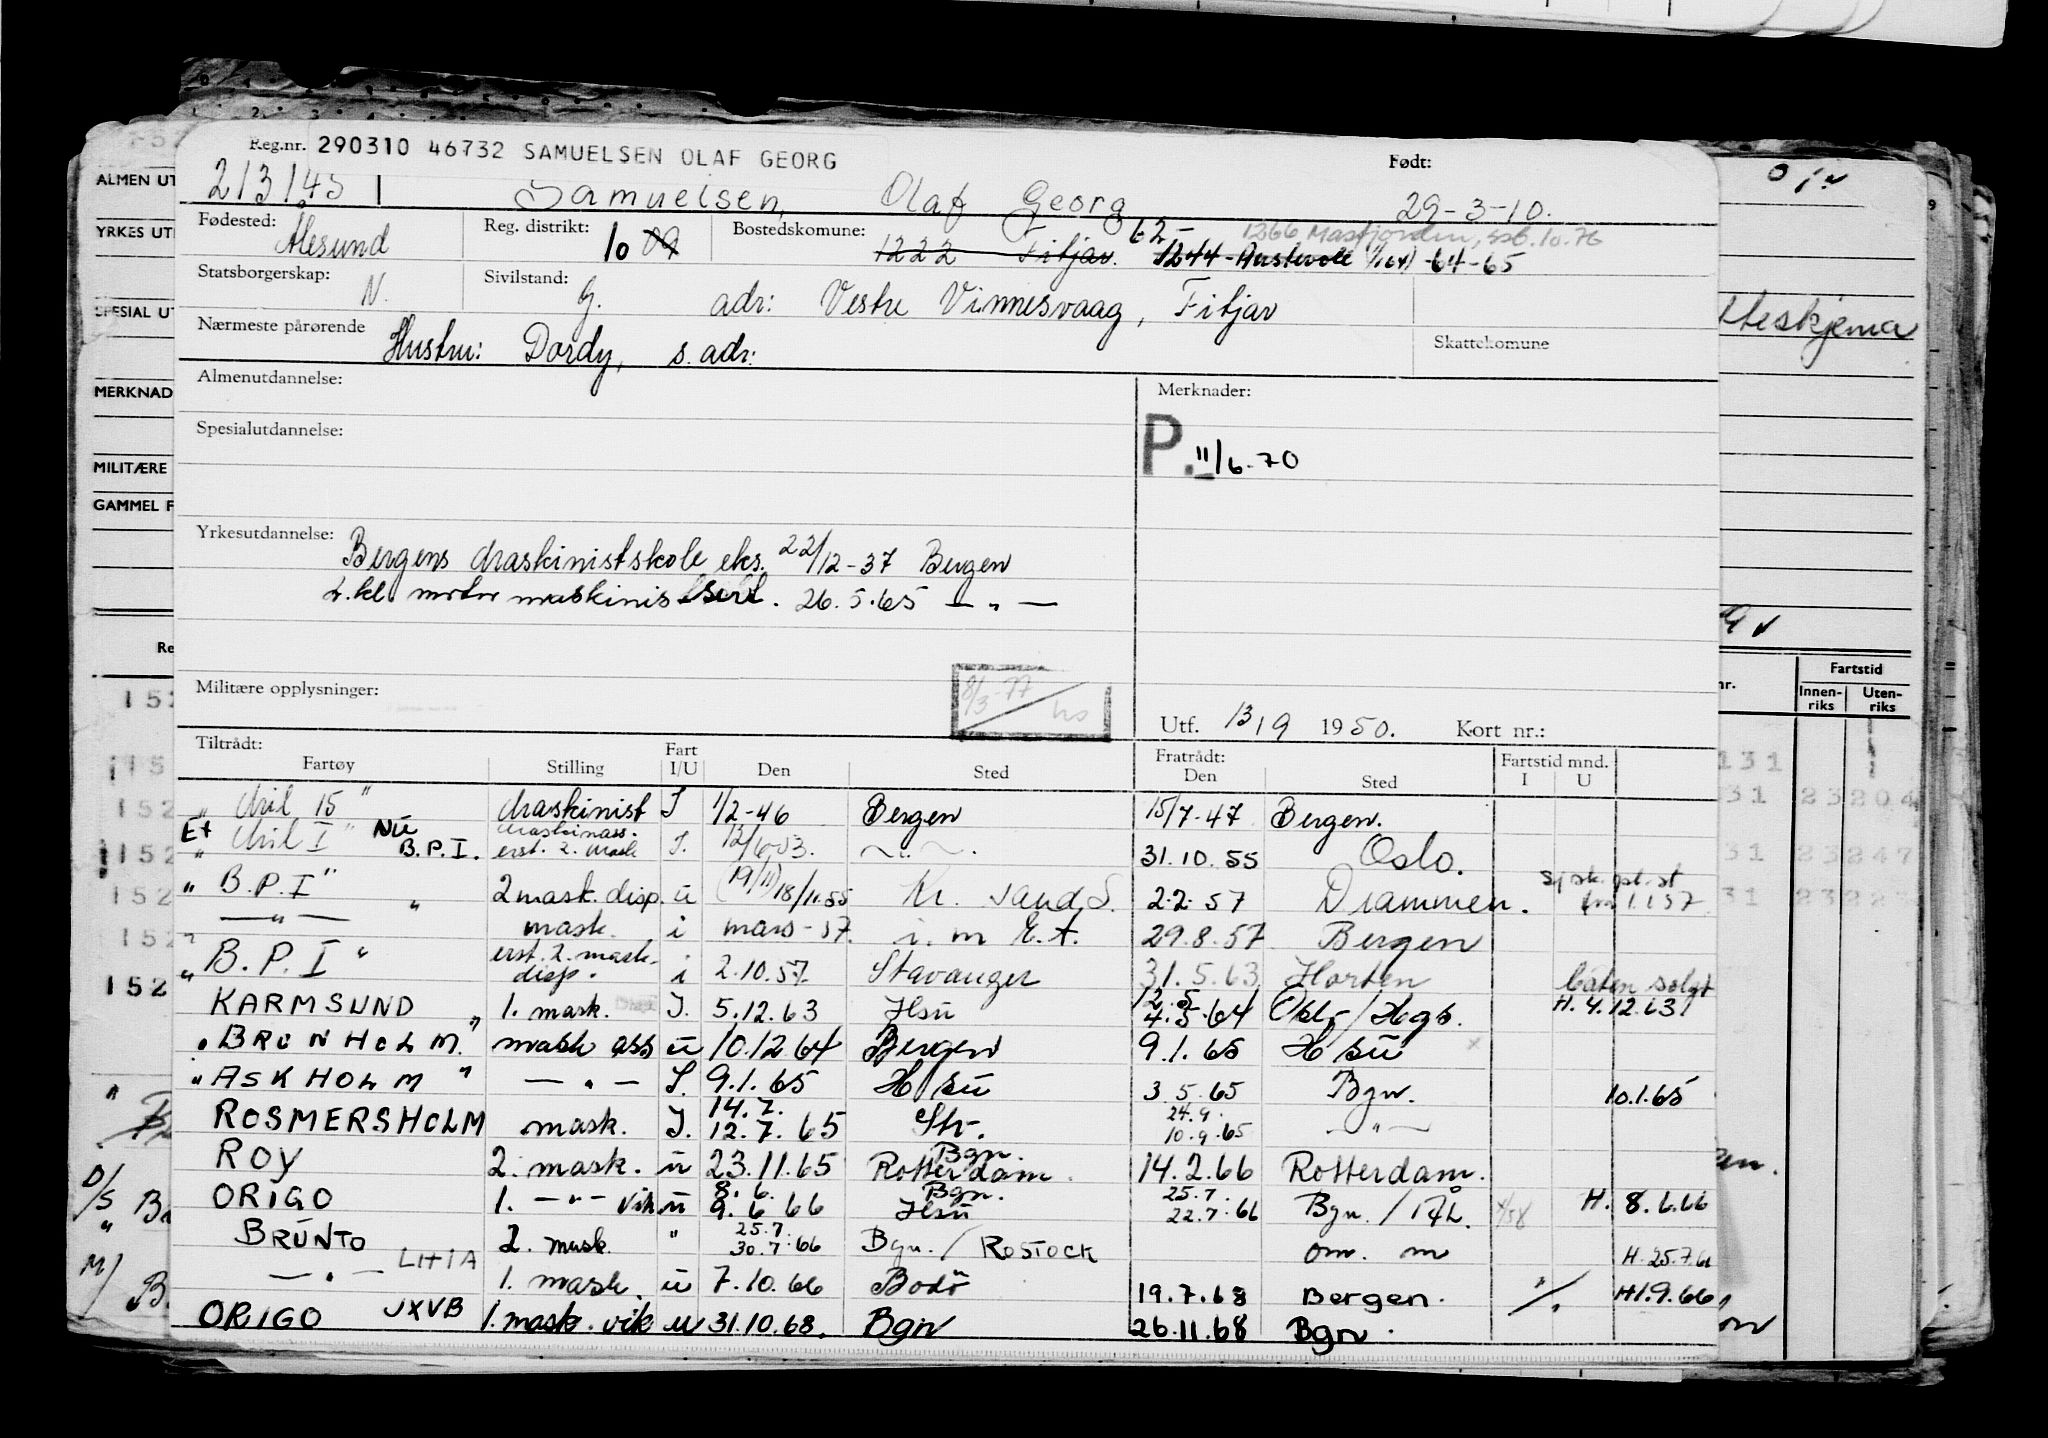 Reg.nr. 290310 46732 SAMUELSEN OLAF GEORG Født:
213145 Samuelsen, Olaf Georg 29-3-10.
Fødested: Ålesund Reg. distrikt: 10 09 Bostedskomune: 1222 Fitjar. 62- 1244-Austevoll -64-65
1266 Masfjorden, ssb. 10.76
Statsborgerskap: N. Sivilstand: G. adr: Vestre Vinnesvaag, Fitjar
Nærmeste pårørende Hustru: Dordy, s. adr: Skattekomune
Almenutdannelse: Merknader:
P. 11/6-70
Spesialutdannelse:
Yrkesutdannelse: Bergens Maskinistskole eks. 22/12-37 Bergen
2.kl. motor maskinist sert. 26.5.65 — " —
Militære opplysninger: 8/3-77
Utf. 13/9 1950. Kort nr.:
Tiltrådt: Fratrådt:
Fartøy Stilling Fart I/U Den Sted Den Sted Fartstid mnd. I U
" Mil 15 " Maskinist I 1/2-46 Bergen 15/7-47 Bergen.
" Mil I " Nu B.P.I. Maskinass. erst. 2. mask I. — " —. 31.10.55 Oslo.
" B.P.I " 2 mask. disp. u (19/11) 18/11.55 Kr. sand S. 2.2.57 Drammen.
— " — " mask. i mars-57. i. m E.A. 29.8.57 Bergen
" B.P.I " erst. 2. mask. disp. i 2.10.57. Stavanger 31.5.63 Horten båten solgt
KARMSUND 1. mask. I. 5.12.63 Hsu 12.5 4.5.64 Oslo/Hgs. H. 4.12.63
" BRUNHOLM " mask ass u 10.12.64 Bergen 9.1.65 Hsu
" ASKHOLM " — " — I. 9.1.65 Hsu 3.5.65 Bgn. 10.1.65
ROSMERSHOLM mask. I. 14.7. 12.7.65 Str. 24.9. 10.9.65 — " —
ROY 2. mask. u 23.11.65 Bgn. Rotterdam. 14.2.66 Rotterdam.
ORIGO 1. — " — vik u 8.6. 9.6.66 Bgn. Hsu 25.7. 22.7.66 Bgn. / H. 8.6.66
BRUNTO 2. mask. " 25.7. 30.7.66 Bgn. / ROSTOCK om. m H. 25.7.66
— " — LHIA 1. mask. u 7.10.66 Bodö 19.7.68 Bergen. H1.9.66
ORIGO JXVB 1. mask. vik u 31.10.68. Bgn 26.11.68 Bgn.
ALMEN UT
YRKES UT
SPESIAL UT
MERKNAD
MILITÆRE
GAMMEL F
Fartstid
Innenriks Utenriks